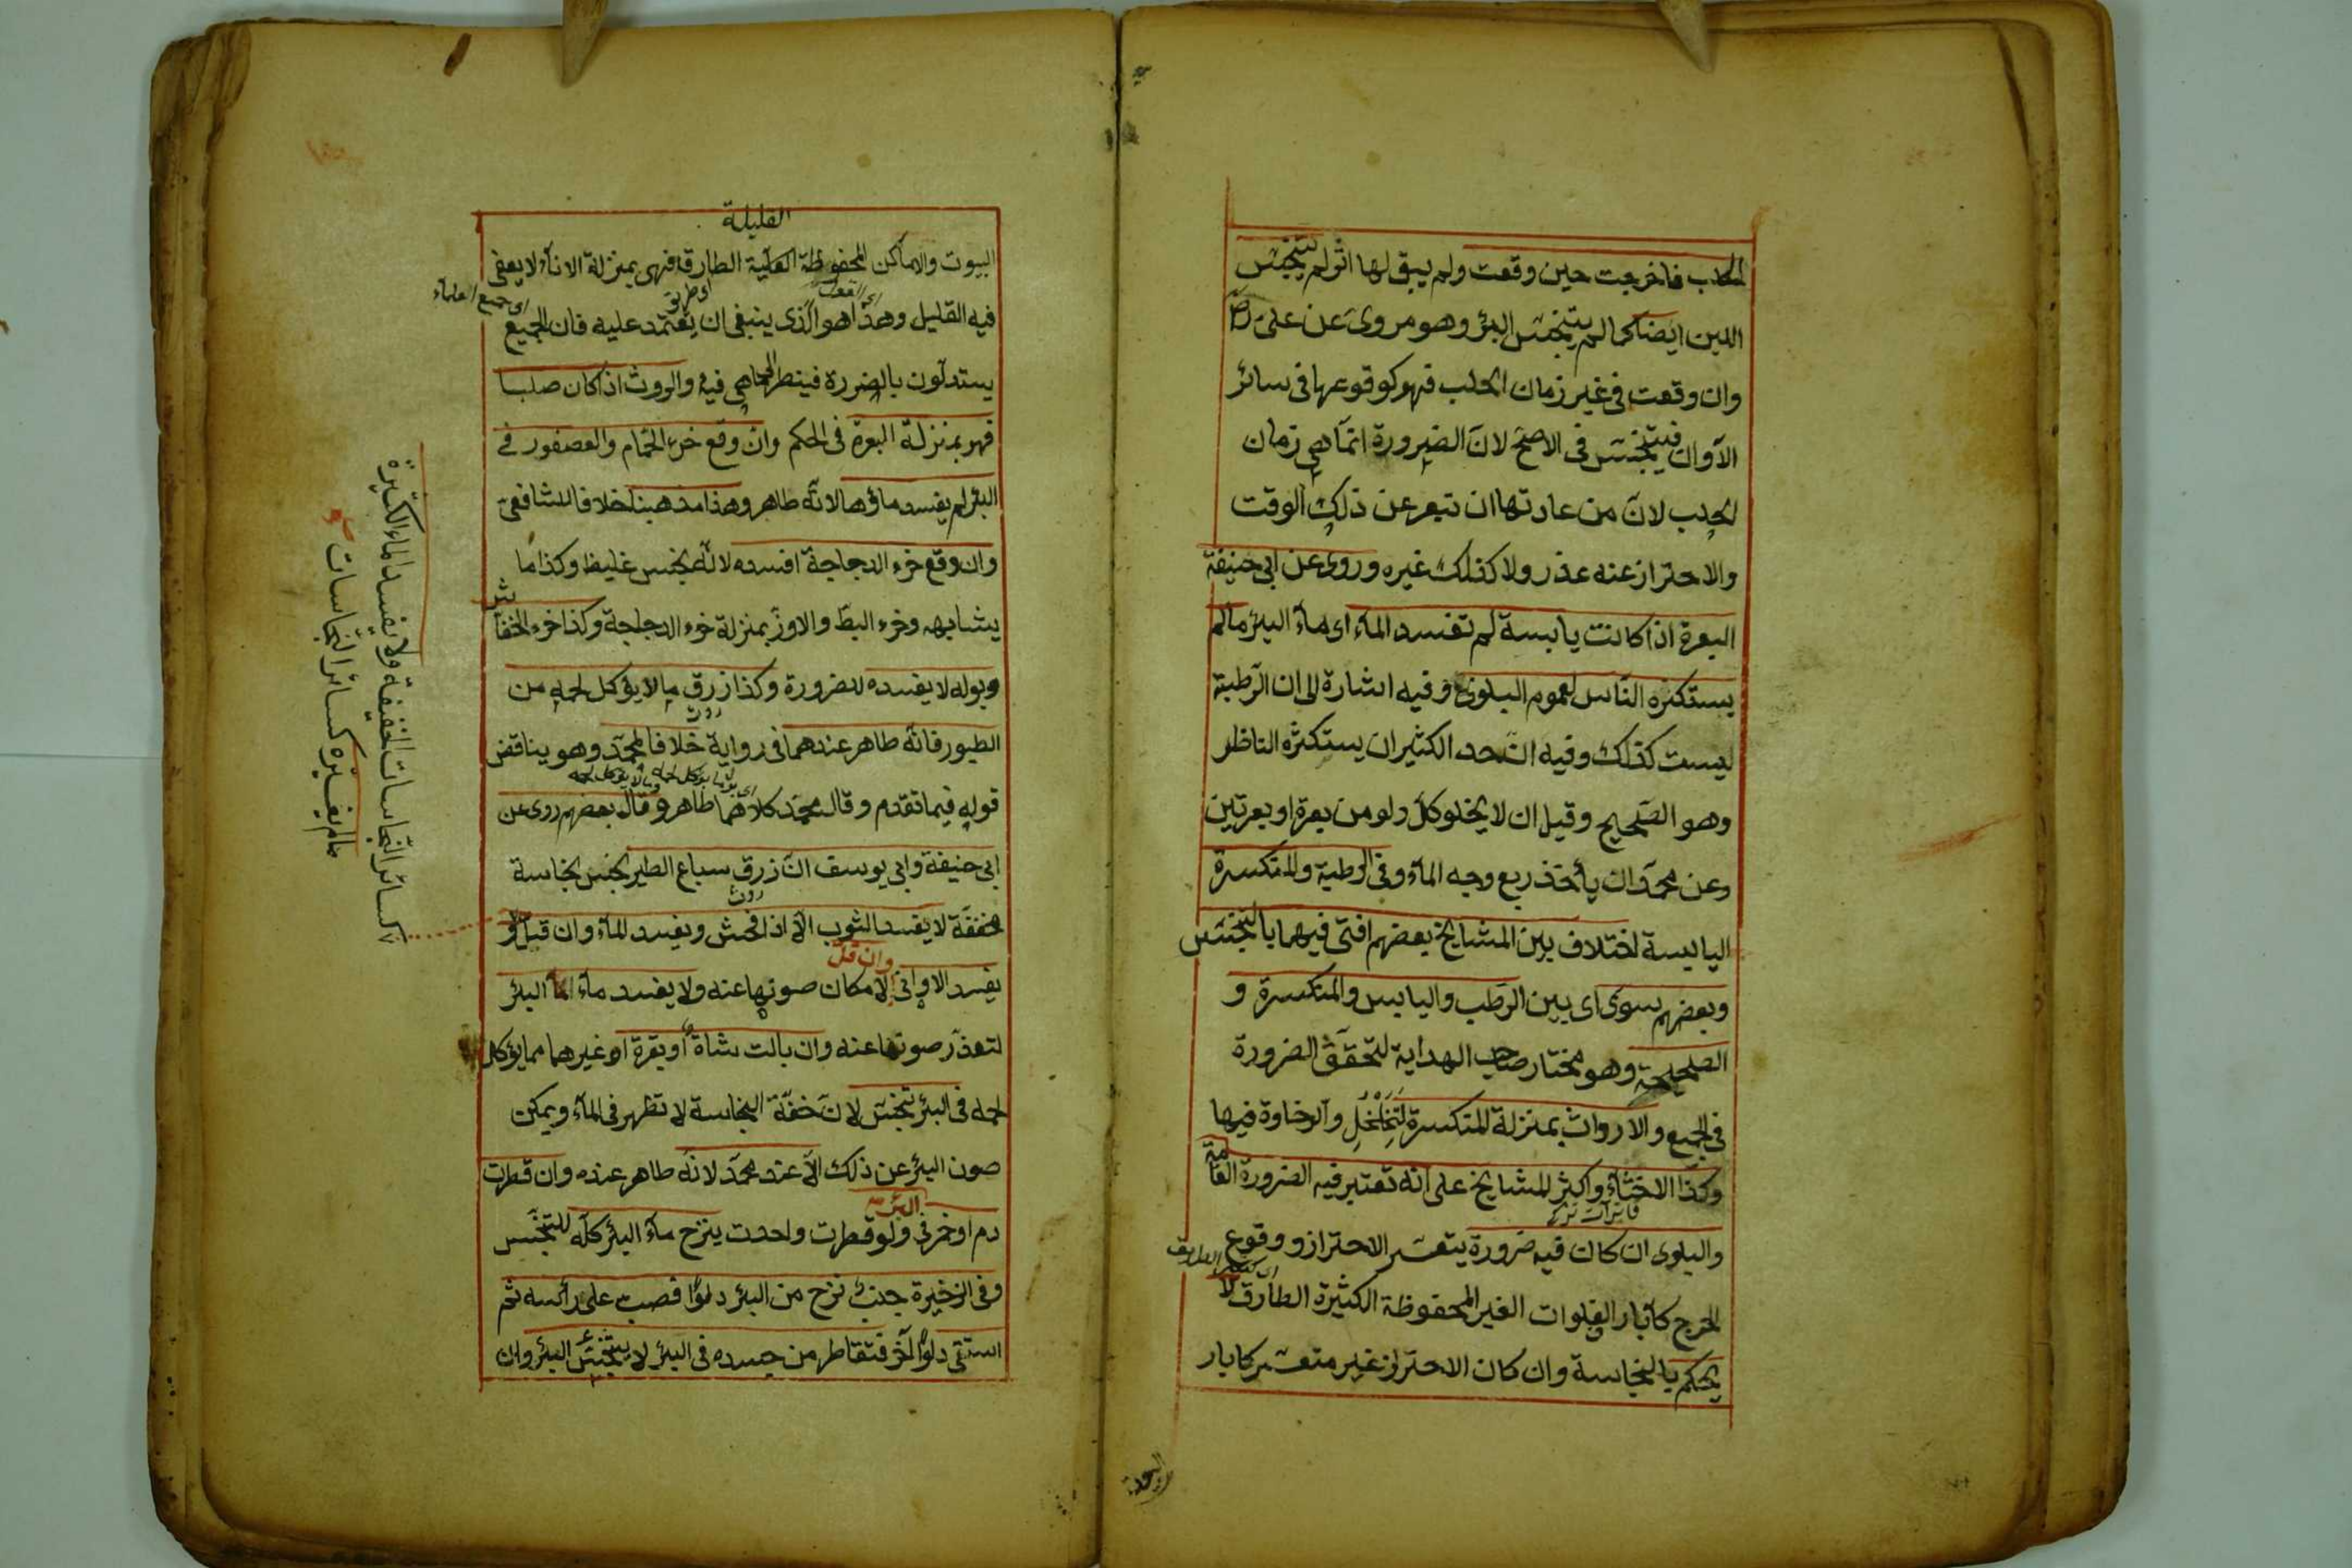 المحلب فاخرجت حين وقعت ولم يبق لها اثر لم يتنجس
اللبن ايضا كما لم يتنجس البئر وهو مروى عن على رض
وان وقعت فى غير زمان الحلب فهو كوقوعها فى سائر
الآوان فيتنجس فى الاصح لان الضرورة انما هى زمان
الحلب لان من عادتها ان تبعر عن ذلك الوقت
والاحتراز عنه عذر ولا كذلك غيره وروى عن ابى حنيفة
البعرة اذا كانت يابسة لم تفسد الماء اى ماء البئر مالم
يستكثره الناس لعموم البلوى وفيه اشارة الى ان الرطبة
ليست كذلك وفيه ان حد الكثير ان يستكثره الناظر
وهو الصحيح وقيل ان لا يخلو كل دلو من بعرة او بعرتين
وعن محمد ان يأخذ ربع وجه الماء وفى الرطبة والمتكسرة
اليابسة اختلاف بين المشايخ بعضهم افتى فيهما بالتنجس
وبعضهم سوى اى بين الرطب واليابس والمتكسرة و
الصحيحة وهو مختار صاحب الهداية لتحقق الضرورة
فى الجميع والارواث بمنزلة المتكسرة لتخلخل والرخاوة فيها
وكذا الاخثاء واكثر المشايخ على انه تعتبر فيه الضرورة العامة
والبلوى ان كان فيه ضرورة يتعسر الاحتراز ووقوع
اى كثير الطريق
الحرج كآبار الفلوات الغير المحفوظة الكثيرة الطارق لا
يحكم بالنجاسة وان كان الاحتراز غير متعسر كابار
القليلة
البيوت والاماكن المحفوظة الطارقة فهى بمنزلة الاناء لا يعفى
اى جميع العلماء
فيه القليل وهذا هو الذى ينبغى ان يعتمد عليه فان الجميع
يستدلون بالضرورة فينظر الى ما هى فيه والروث اذ كان صلبا
فهو بمنزلة البعرة فى الحكم وان وقع خرء الحمام والعصفور فى
البئر لم يفسد ماؤها لانه طاهر وهذا مذهبنا خلافا للشافعى
وان وقع خرء الدجاجة افسده لانه نجس غليظ وكذا ما
يشابهه وخرء البط والاوز بمنزلة خرء الدجاجة وكذا خرء الخفاش
وبوله لا يفسده للضرورة وكذا زرق ما لا يؤكل لحمه من
الطيور فانه طاهر عندهما فى رواية خلافا لمحمد وهو يناقض
قوله فيما تقدم وقال محمد كلاهما طاهر وقال بعضهم روى عن
ابى حنيفة وابى يوسف ان زرق سباع الطير نجس نجاسة
مخففة لا يفسد الثوب الا اذا فحش ويفسد الماء وان قل و
وان قل
يفسد الاوانى لامكان صونها عنه ولا يفسد ماء البئر
لتعذر صونها عنه وان بالت شاة او بقرة او غيرهما مما يؤكل
لحمه فى البئر تنجس لان خفة النجاسة لا تظهر فى الماء ويمكن
صون البئر عن ذلك الا عند محمد لانه طاهر عنده وان قطرت
البئر
دم او خمر فى ولو قطرت واحدت ينزح ماء البئر كله للتنجس
وفى الذخيرة جنب نزح من البئر دلوا فصب على رأسه ثم
استقى دلوا آخر فتقاطر من جسده فى البئر لا يتنجس البئر وان
كسائر النجاسات الخفيفة ولا يفسد الماء الكثيرة
مالم يغيره كسائر النجاسات